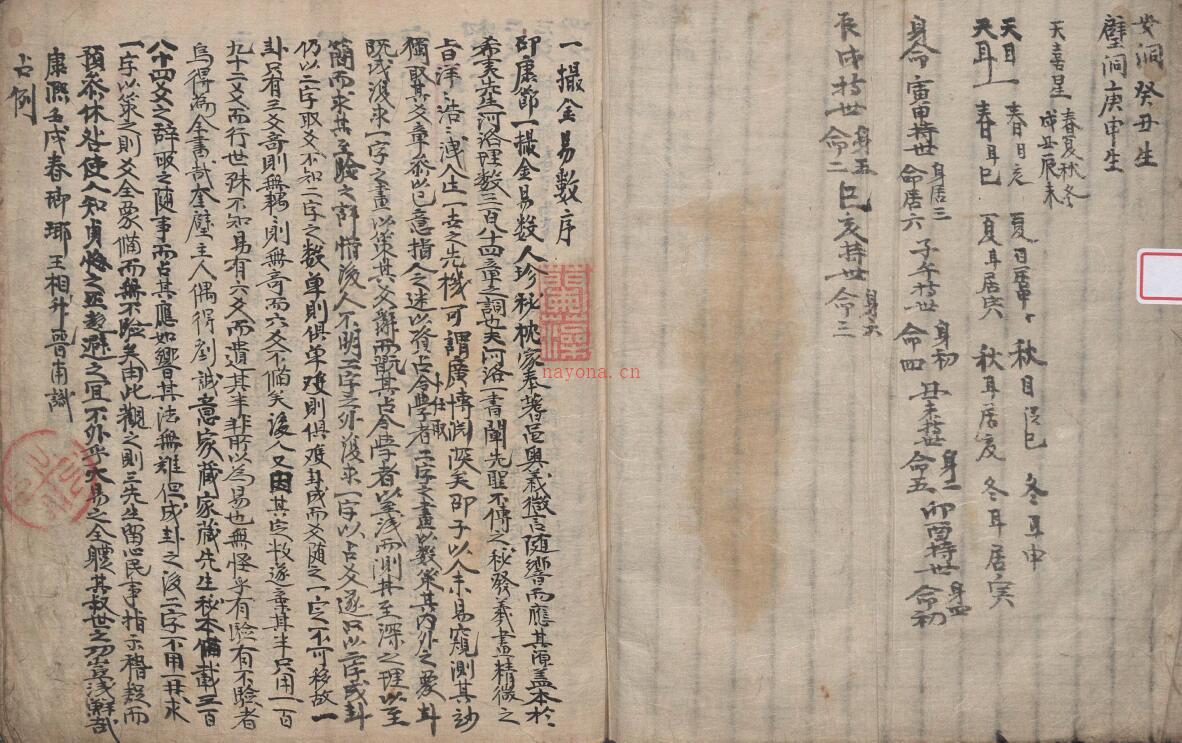 女洞癸丑生
壁洞庚申生
天喜星 春夏秋冬 戌丑辰未
天目 春目 夏目 秋目 冬耳申
天耳 春耳巳 夏耳居寅 秋耳居亥 冬耳居寅
身命 寅申持世 身居三 命居六 子午持世 身初 命四 丑未持世 身二 命五 卯酉持世 身四 命初
辰戌持世 身五 命二 巳亥持世 身六 命三
一撮金易數序
邵康節一撮金易數人珍秘枕家奉蓍邑奧義微言隨響而應其源蓋本於
希夷 河洛理數三百八十四章之詞 夫河洛一書闡先聖不傳之秘發羲畫精微之
旨洋洋浩浩洩八 一之先機可謂廣博淵深矣邵子以人未易窺測其妙
獨取其文章參以己意指人之迷以發占令學者二字之畫以數策其內外之卦
既成復求一字之畫以策其爻辭而 其占令學者以至淺而測其至深之理以至
簡而求其至驗之辭惜後人不明二字之外復求一字以占爻遂只以二字成卦
仍以二字取爻不知二字之數單則俱單雙則俱雙卦成而爻隨之一定不可移故一
卦只有三爻奇則無耦耦則無奇而六爻不備矣後人又因其定數遂棄其半只用一百
九十二爻而行世殊不知易有六爻而遺其半非所以為易也無怪乎有驗有不驗者
烏得為全書哉奎壁主人偶得劉誠意家藏家藏先生秘本備載三百
八十四爻之辭取之隨事而占其應如響其法無難但成卦之後二字不用一再求
一字以策之則爻全象備而無不驗矣由此觀之則三先生留心民事指示稽疑而
預參休咎使人知貞悔之 趨避之宜不外乎大易之全體其救世之功豈淺鮮哉
康熙壬戌春瑯琊王相升晉甫識
占例
nayona.cn